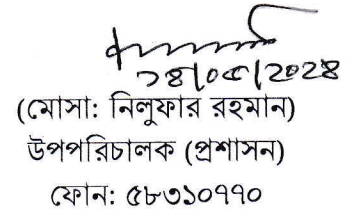 ১৪/০৫/২০২৪
(মোসা: নিলুফার রহমান)
উপপরিচালক (প্রশাসন)
ফোন: ৫৮৩১০৭৭০